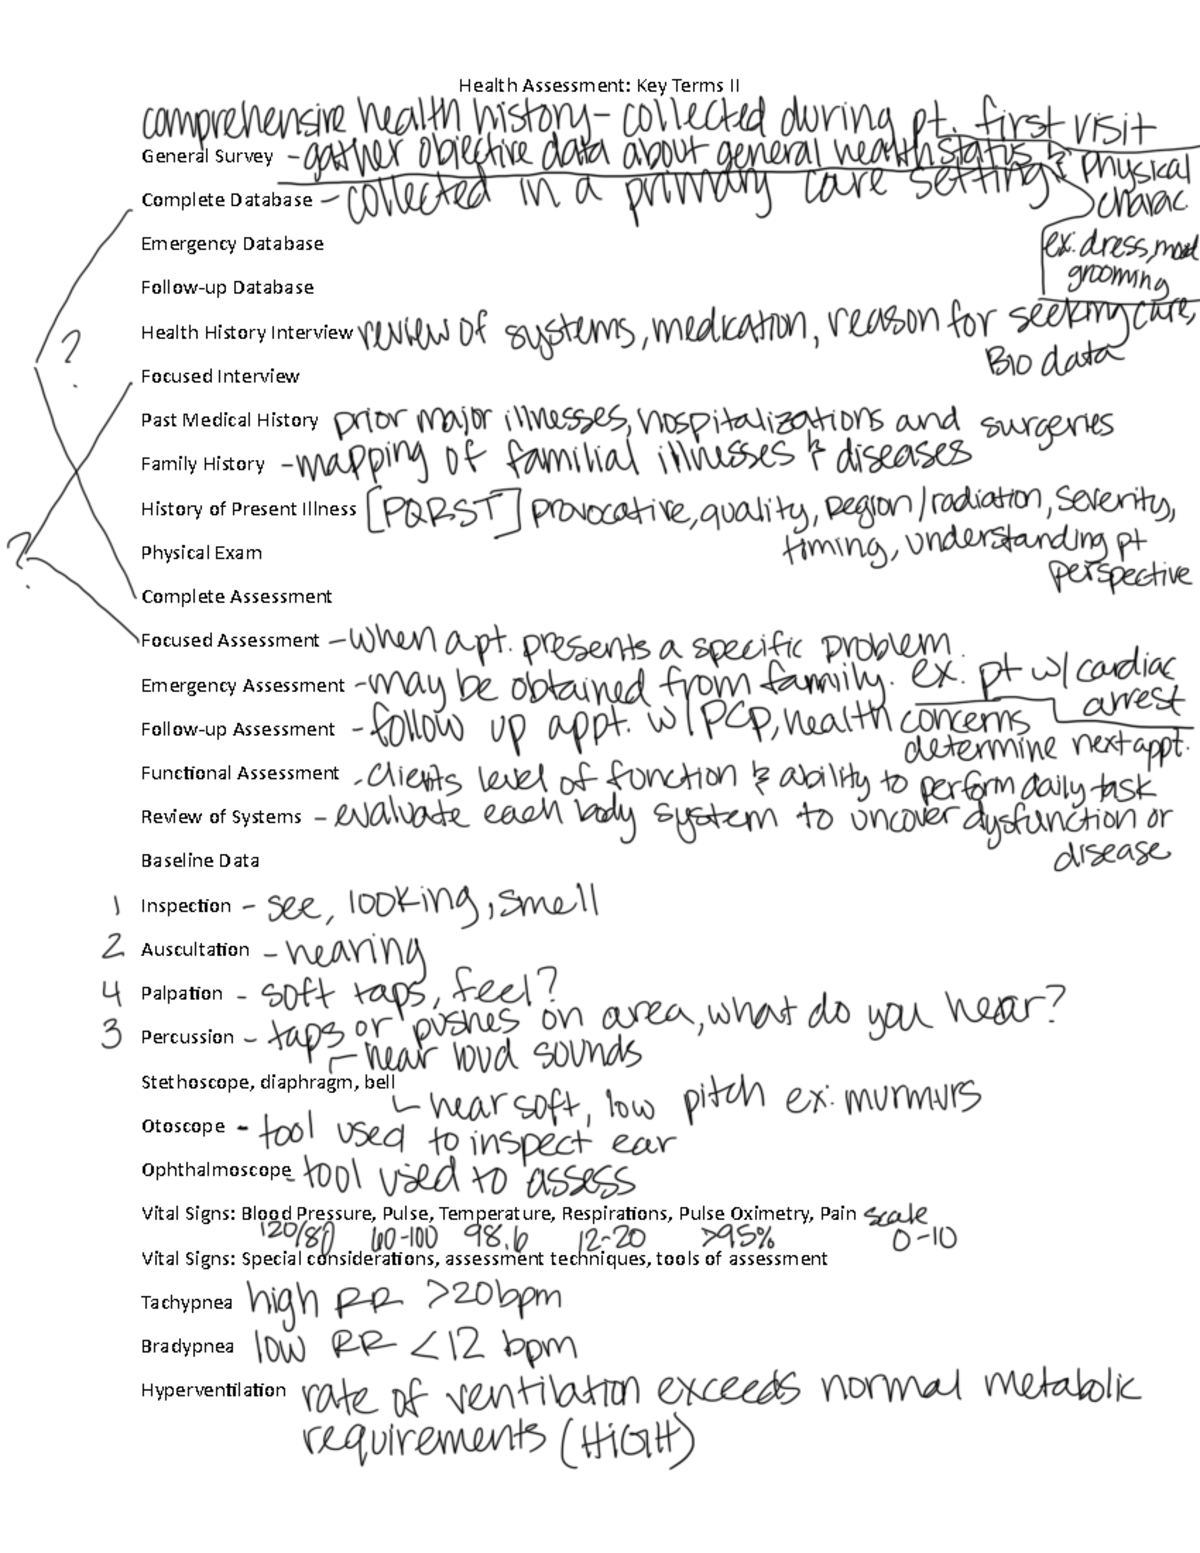 Health Assessment: Key Terms II
comprehensive health history - collected during pt. first visit
General Survey - gather objective data about general health status & physical charac.
ex: dress, mood
grooming
Complete Database - collected in a primary care setting
Emergency Database
Follow-up Database
?
Health History Interview review of systems, medication, reason for seeking care,
Bio data
Focused Interview
Past Medical History prior major illnesses, hospitalizations and surgeries
Family History - mapping of familial illnesses & diseases
History of Present Illness [PQRST] provocative, quality, region/radiation, severity,
timing, understanding pt
perspective
?
Physical Exam
Complete Assessment
Focused Assessment - when a pt. presents a specific problem.
Emergency Assessment - may be obtained from family. ex. pt w/ cardiac
arrest
Follow-up Assessment - follow up appt. w/ PCP, health concerns
determine next appt.
Functional Assessment - clients level of function & ability to perform daily task
Review of Systems - evaluate each body system to uncover dysfunction or
disease
Baseline Data
1 Inspection - see, looking, smell
2 Auscultation - hearing
4 Palpation - soft taps, feel?
3 Percussion - taps or pushes on area, what do you hear?
hear loud sounds
Stethoscope, diaphragm, bell
hear soft, low pitch ex: murmurs
Otoscope - tool used to inspect ear
Ophthalmoscope - tool used to assess
Vital Signs: Blood Pressure, Pulse, Temperature, Respirations, Pulse Oximetry, Pain scale
120/80 60-100 98.6 12-20 >95% 0-10
Vital Signs: Special considerations, assessment techniques, tools of assessment
Tachypnea high RR >20 bpm
Bradypnea low RR <12 bpm
Hyperventilation rate of ventilation exceeds normal metabolic
requirements (HIGH)